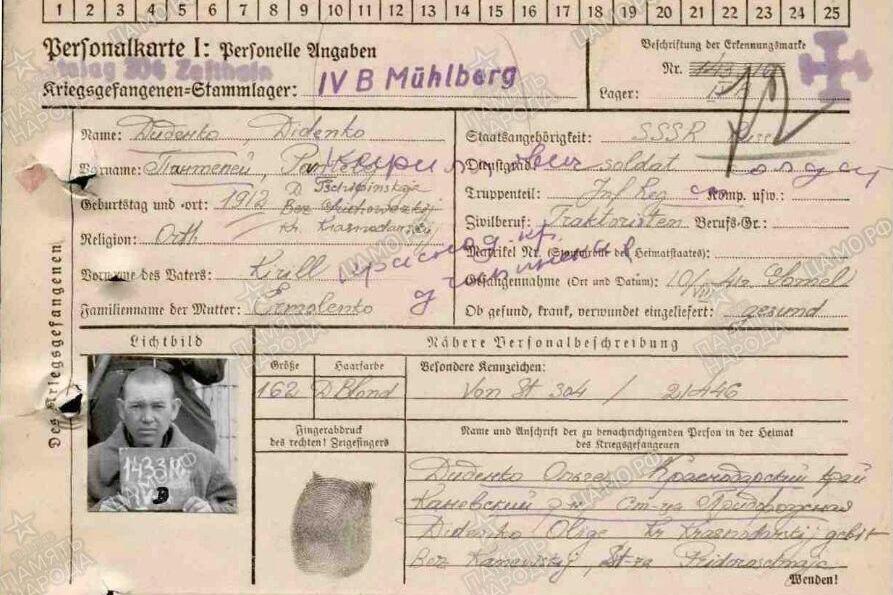 1 2 3 4 5 6 7 8 9 10 11 12 13 14 15 16 17 18 19 20 21 22 23 24 25
Personalkarte I: Personelle Angaben
Stalag 304 Zeithain
Kriegsgefangenen=Stammlager: IV B Mühlberg
Beschriftung der Erkennungsmarke
Nr.
Lager:
Des Kriegsgefangenen
Name: Диденко, Didenko
Vorname: Пантелей,
Geburtstag und =ort: 1912
Kr. Krasnodarskij
Religion: Orth
Vorname des Vaters: Kirill
Familienname der Mutter: Ermolenko
Staatsangehörigkeit: SSSR
Dienstgrad: soldat
Truppenteil: Inf Reg Komp. usw.:
Zivilberuf: Traktoristen Berufs=Gr.:
Matrikel Nr. (Stammrolle des Heimatstaates):
Gefangennahme (Ort und Datum): 10/VII 42
Ob gesund, krank, verwundet eingeliefert: gesund
Lichtbild
Nähere Personalbeschreibung
Größe
162
Haarfarbe
D Blond
Besondere Kennzeichen:
Von St 304 /
Fingerabdruck
des rechten! Zeigefingers
Name und Anschrift der zu benachrichtigenden Person in der Heimat
des Kriegsgefangenen
Диденко Ольга Краснодарский край
Каневский р-н Ст-ца
Didenko Olige Kr Krasnodarskij gebit
Bez Kanewskij, St-za
Wenden!
ПАМЯТЬ НАРОДА
ЦАМО.РФ